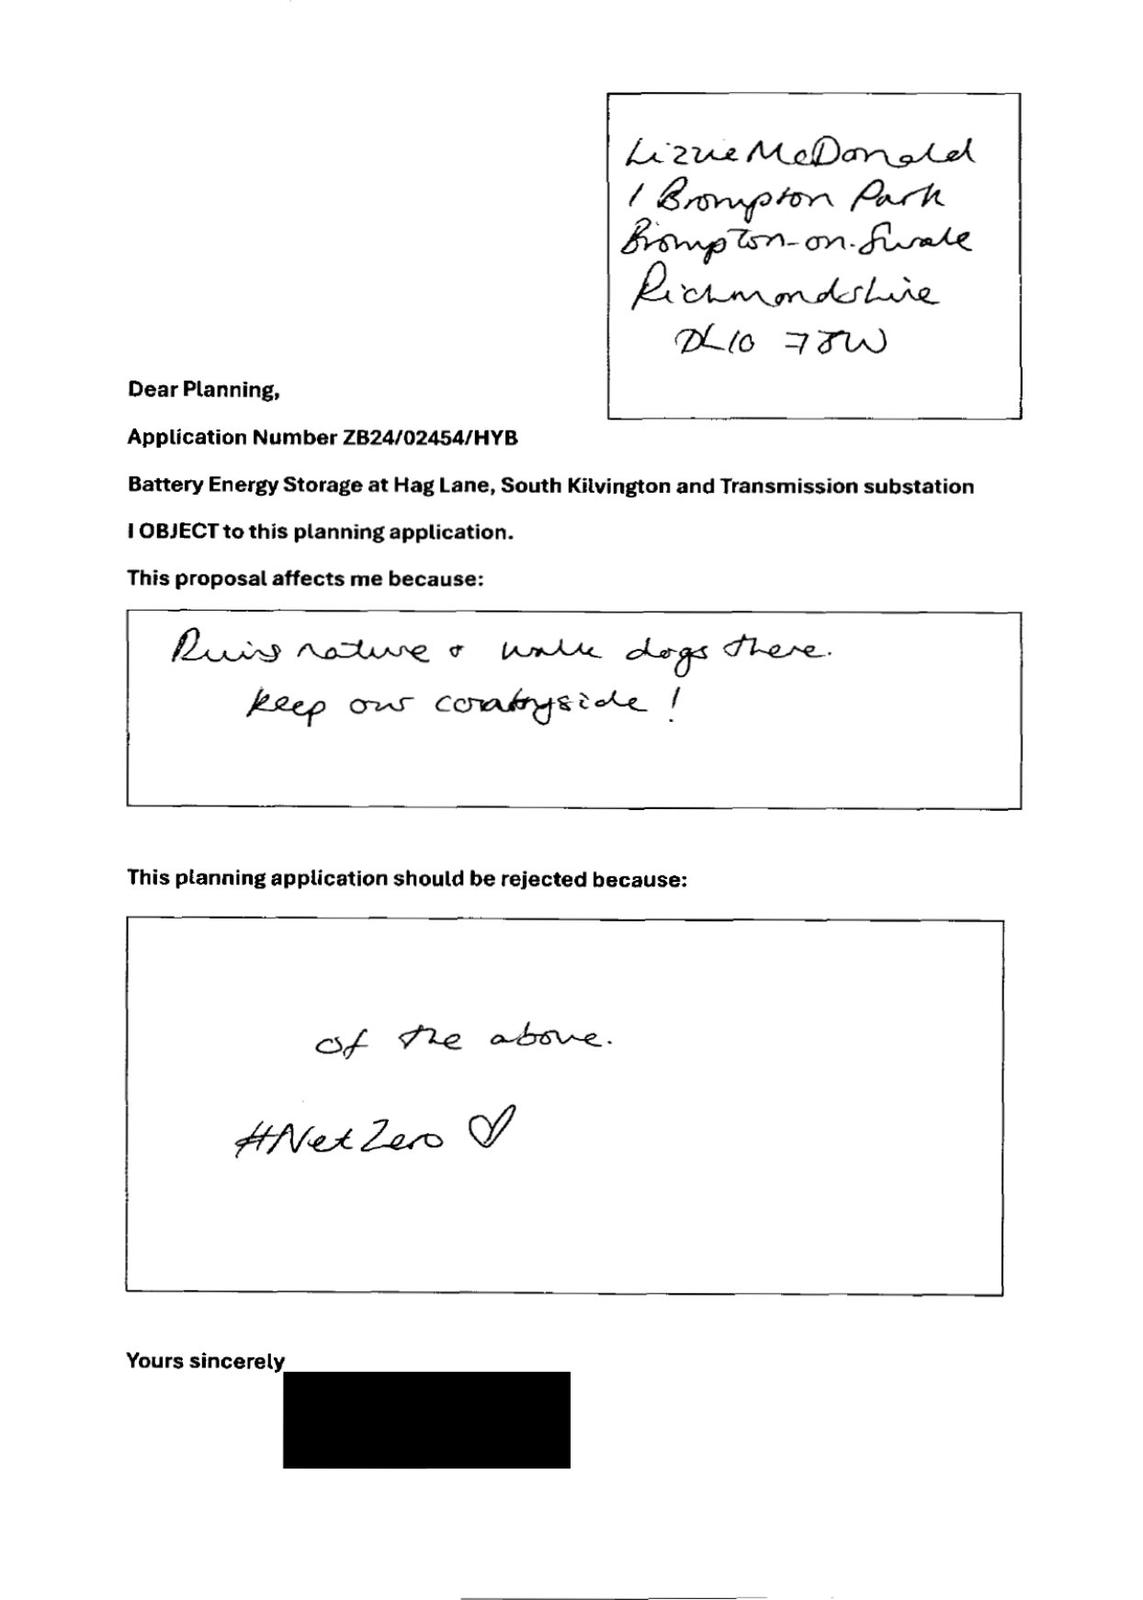 Lizzie McDonald
1 Brompton Park
Brompton-on-Swale
Richmondshire
DL10 7JW
Dear Planning,
Application Number ZB24/02454/HYB
Battery Energy Storage at Hag Lane, South Kilvington and Transmission substation
I OBJECT to this planning application.
This proposal affects me because:
Ruins nature & walk dogs there.
keep our countryside!
This planning application should be rejected because:
of the above.
#NetZero ♡
Yours sincerely